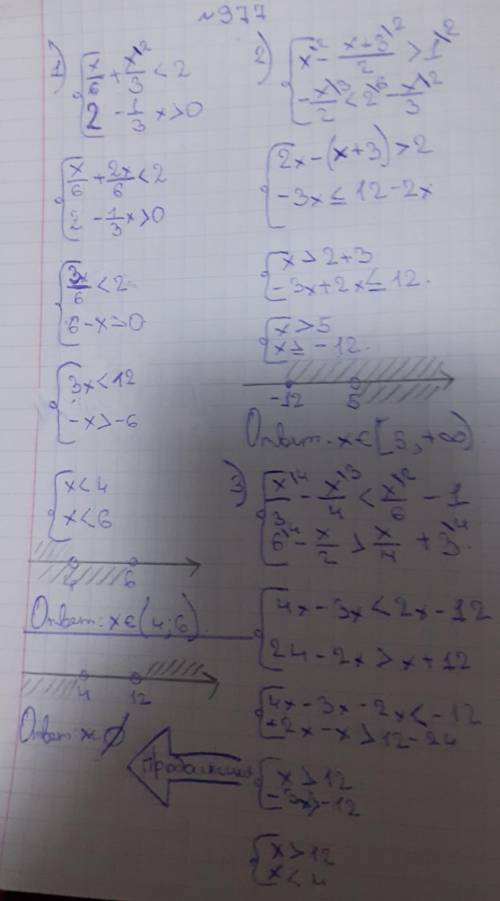 №977
1) { x/6 + x/3 ^2 < 2
2 - 1/3 x > 0
{ x/6 + 2x/6 < 2
2 - 1/3 x > 0
{ 3x/6 < 2
6 - x > 0
{ 3x < 12
-x > -6
{ x < 4
x < 6
4 6
Ответ: x∈(4;6)
2) { x^2 - (x+3)/2 > 1^2
-x/2 ^3 < 2^6 - x/3 ^2
{ 2x - (x+3) > 2
-3x ≤ 12 - 2x
{ x > 2+3
-3x + 2x ≤ 12
{ x > 5
x ≥ -12
-12 5
Ответ: x∈[5, +∞)
3) { x/3 ^4 - x/4 ^3 < x/6 ^2 - 1
6^4 - x/2 > x/4 + 3^4
{ 4x - 3x < 2x - 12
24 - 2x > x + 12
{ 4x - 3x - 2x < -12
-2x - x > 12 - 24
{ x > 12
-3x > -12
{ x > 12
x < 4
4 12
Ответ: x ∅